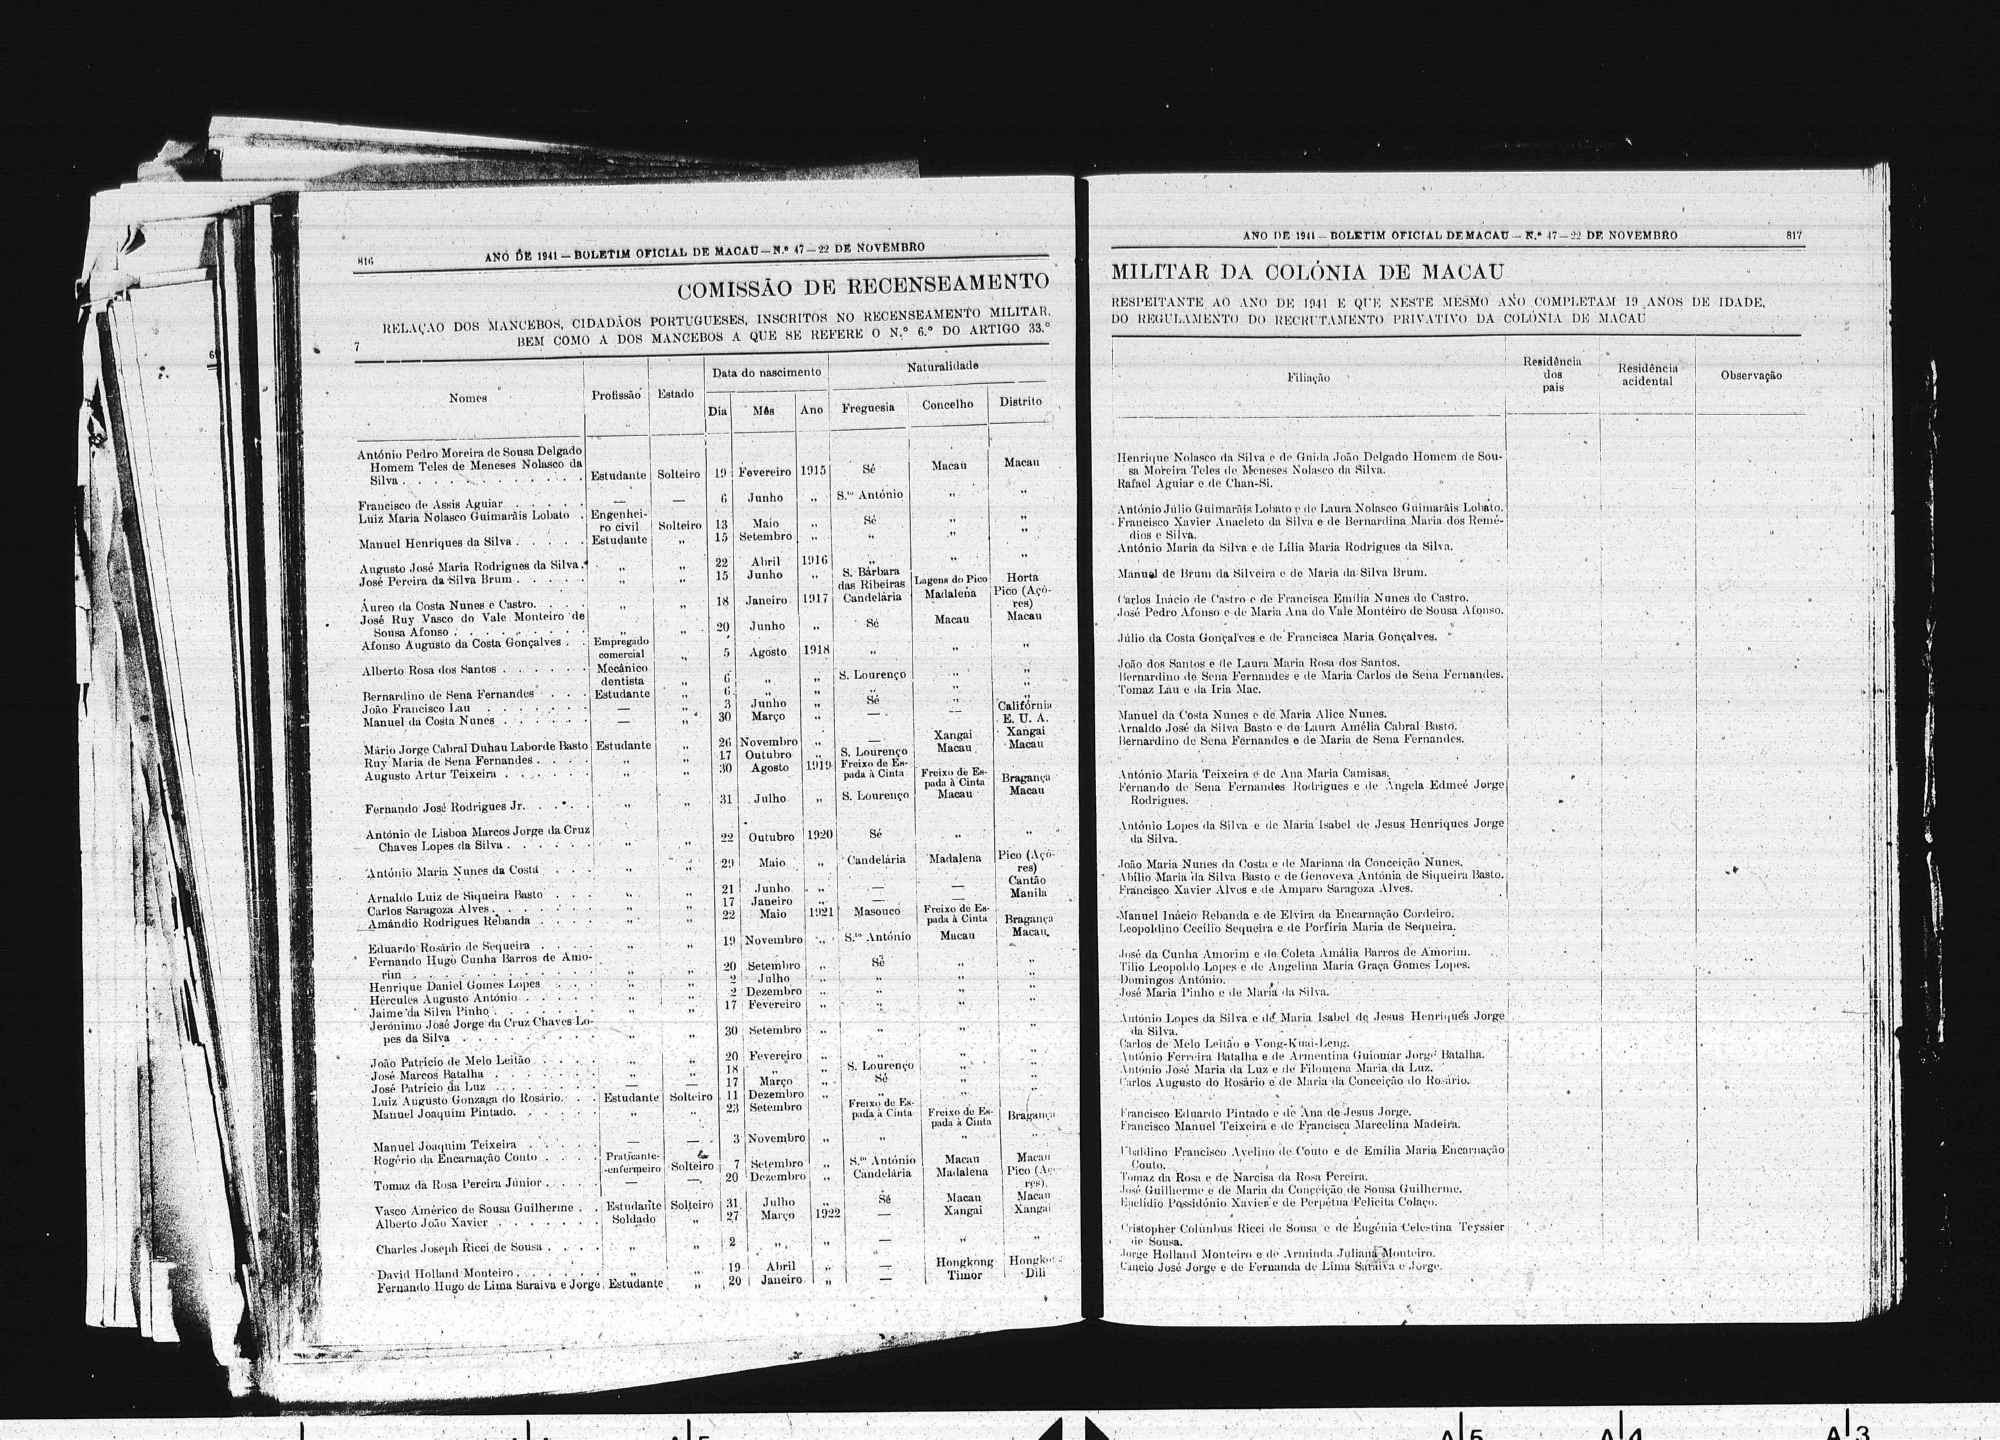 816
ANO DE 1941 — BOLETIM OFICIAL DE MACAU — N.º 47 — 22 DE NOVEMBRO
COMISSÃO DE RECENSEAMENTO
RELAÇAO DOS MANCEBOS, CIDADÃOS PORTUGUESES, INSCRITOS NO RECENSEAMENTO MILITAR,
BEM COMO A DOS MANCEBOS A QUE SE REFERE O N.º 6.º DO ARTIGO 33.º
7
Nomes Profissão Estado Data do nascimento Naturalidade
Dia Mês Ano Freguesia Concelho Distrito
António Pedro Moreira de Sousa Delgado
Homem Teles de Meneses Nolasco da
Silva . . . . Estudante Solteiro 19 Fevereiro 1915 Sé Macau Macau
Francisco de Assis Aguiar . . . . — — 6 Junho „ S.to António „ „
Luiz Maria Nolasco Guimarãis Lobato . Engenhei-
ro civil Solteiro 13 Maio „ Sé „ „
Manuel Henriques da Silva . . . . Estudante „ 15 Setembro „ „ „ „
Augusto José Maria Rodrigues da Silva. „ „ 22 Abril 1916 „ „ „
José Pereira da Silva Brum . . . . „ „ 15 Junho „ S. Bárbara
das Ribeiras Lagens do Pico Horta
Áureo da Costa Nunes e Castro. . . . „ „ 18 Janeiro 1917 Candelária Madalena Pico (Aço-
res)
José Ruy Vasco do Vale Monteiro de
Sousa Afonso . . . . „ „ 20 Junho „ Sé Macau Macau
Afonso Augusto da Costa Gonçalves . . Empregado
comercial „ 5 Agosto 1918 „ „ „
Alberto Rosa dos Santos . . . . Mecânico
dentista „ 6 „ „ S. Lourenço „ „
Bernardino de Sena Fernandes . . . Estudante „ 6 „ „ „ „ „
João Francisco Lau . . . . — „ 3 Junho „ Sé „ „
Manuel da Costa Nunes . . . . — „ 30 Março „ — — Califórnia
E. U. A.
Mário Jorge Cabral Duhau Laborde Basto Estudante „ 26 Novembro „ — Xangai Xangai
Ruy Maria de Sena Fernandes . . . . „ „ 17 Outubro „ S. Lourenço Macau Macau
Augusto Artur Teixeira . . . . „ „ 30 Agosto 1919 Freixo de Es-
pada à Cinta Freixo de Es-
pada à Cinta Bragança
Fernando José Rodrigues Jr. . . . . „ „ 31 Julho „ S. Lourenço Macau Macau
António de Lisboa Marcos Jorge da Cruz
Chaves Lopes da Silva . . . . „ „ 22 Outubro 1920 Sé „ „
António Maria Nunes da Costa . . . „ „ 29 Maio „ Candelária Madalena Pico (Aço-
res)
Arnaldo Luiz de Siqueira Basto . . . „ „ 21 Junho „ — — Cantão
Carlos Saragoza Alves . . . . „ „ 17 Janeiro „ — — Manila
Amândio Rodrigues Rebanda . . . . „ „ 22 Maio 1921 Masouco Freixo de Es-
pada à Cinta Bragança
Eduardo Rosário de Sequeira . . . . „ „ 19 Novembro „ S.to António Macau Macau
Fernando Hugo Cunha Barros de Amo-
rim . . . . „ „ 20 Setembro „ Sé „ „
Henrique Daniel Gomes Lopes . . . „ „ 2 Julho „ „ „ „
Hércules Augusto António . . . . „ „ 2 Dezembro „ „ „ „
Jaime da Silva Pinho . . . . „ „ 17 Fevereiro „ „ „ „
Jerónimo José Jorge da Cruz Chaves Lo-
pes da Silva . . . . „ „ 30 Setembro „ „ „ „
João Patrício de Melo Leitão . . . . „ „ 20 Fevereiro „ „ „ „
José Marcos Batalha . . . . „ „ 18 „ „ S. Lourenço „ „
José Patrício da Luz . . . . — — 17 Março „ Sé „ „
Luiz Augusto Gonzaga do Rosário. . . Estudante Solteiro 11 Dezembro „ „ „ „
Manuel Joaquim Pintado. . . . . „ „ 23 Setembro Freixo de Es-
pada à Cinta Freixo de Es-
pada à Cinta Bragança
Manuel Joaquim Teixeira . . . . — — 3 Novembro „ „ „ „
Rogério da Encarnação Couto . . . . Praticante-
-enfermeiro Solteiro 7 Setembro „ S.to António Macau Macau
Tomaz da Rosa Pereira Júnior . . . . — — 20 Dezembro „ Candelária Madalena Pico (Aço-
res)
Vasco Américo de Sousa Guilherme . . Estudante Solteiro 31 Julho „ Sé Macau Macau
Alberto João Xavier . . . . Soldado „ 27 Março 1922 — Xangai Xangai
Charles Joseph Ricci de Sousa . . . . „ „ 2 „ „ — „ „
David Holland Monteiro . . . . „ „ 19 Abril „ — Hongkong
Fernando Hugo de Lima Saraiva e Jorge Estudante „ 20 Janeiro „ — Timor Dili
ANO DE 1941 — BOLETIM OFICIAL DE MACAU — N.º 47 — 22 DE NOVEMBRO
817
MILITAR DA COLÓNIA DE MACAU
RESPEITANTE AO ANO DE 1941 E QUE NESTE MESMO ANO COMPLETAM 19 ANOS DE IDADE,
DO REGULAMENTO DO RECRUTAMENTO PRIVATIVO DA COLÓNIA DE MACAU
Filiação Residência
dos
pais Residência
acidental Observação
Henrique Nolasco da Silva e de Guida João Delgado Homem de Sou-
sa Moreira Teles de Meneses Nolasco da Silva.
Rafael Aguiar e de Chan-Si.
António Júlio Guimarãis Lobato e de Laura Nolasco Guimarãis Lobato.
Francisco Xavier Anacleto da Silva e de Bernardina Maria dos Remé-
dios e Silva.
António Maria da Silva e de Lília Maria Rodrigues da Silva.
Manuel de Brum da Silveira e de Maria da Silva Brum.
Carlos Inácio de Castro e de Francisca Emília Nunes de Castro.
José Pedro Afonso e de Maria Ana do Vale Montéiro de Sousa Afonso.
Júlio da Costa Gonçalves e de Francisca Maria Gonçalves.
João dos Santos e de Laura Maria Rosa dos Santos.
Bernardino de Sena Fernandes e de Maria Carlos de Sena Fernandes.
Tomaz Lau e da Iria Mac.
Manuel da Costa Nunes e de Maria Alice Nunes.
Arnaldo José da Silva Basto e de Laura Amélia Cabral Basto.
Bernardino de Sena Fernandes e de Maria de Sena Fernandes.
António Maria Teixeira e de Ana Maria Camisas.
Fernando de Sena Fernandes Rodrigues e de Ângela Edmeé Jorge
Rodrigues.
António Lopes da Silva e de Maria Isabel de Jesus Henriques Jorge
da Silva.
João Maria Nunes da Costa e de Mariana da Conceição Nunes.
Abílio Maria da Silva Basto e de Genoveva Antónia de Siqueira Basto.
Francisco Xavier Alves e de Amparo Saragoza Alves.
Manuel Inácio Rebanda e de Elvira da Encarnação Cordeiro.
Leopoldino Cecílio Sequeira e de Porfíria Maria de Sequeira.
José da Cunha Amorim e de Coleta Amália Barros de Amorim.
Tílio Leopoldo Lopes e de Angelina Maria Graça Gomes Lopes.
Domingos António.
José Maria Pinho e de Maria da Silva.
António Lopes da Silva e de Maria Isabel de Jesus Henriques Jorge
da Silva.
Carlos de Melo Leitão e Vong-Kuai-Leng.
António Ferreira Batalha e de Armentina Guiomar Jorge Batalha.
António José Maria da Luz e de Filomena Maria da Luz.
Carlos Augusto do Rosário e de Maria da Conceição do Rosário.
Francisco Eduardo Pintado e de Ana de Jesus Jorge.
Francisco Manuel Teixeira e de Francisca Marcelina Madeira.
Ubaldino Francisco Avelino de Couto e de Emília Maria Encarnação
Couto.
Tomaz da Rosa e de Narcisa da Rosa Pereira.
José Guilherme e de Maria da Conceição de Sousa Guilherme.
Euclídio Possidónio Xavier e de Perpétua Felicita Colaço.
Cristopher Columbus Ricci de Sousa e de Eugénia Celestina Teyssier
de Sousa.
Jorge Holland Monteiro e de Arminda Juliana Monteiro.
Câncio José Jorge e de Fernanda de Lima Saraiva e Jorge.
A 5 A 5 A 4 A 3